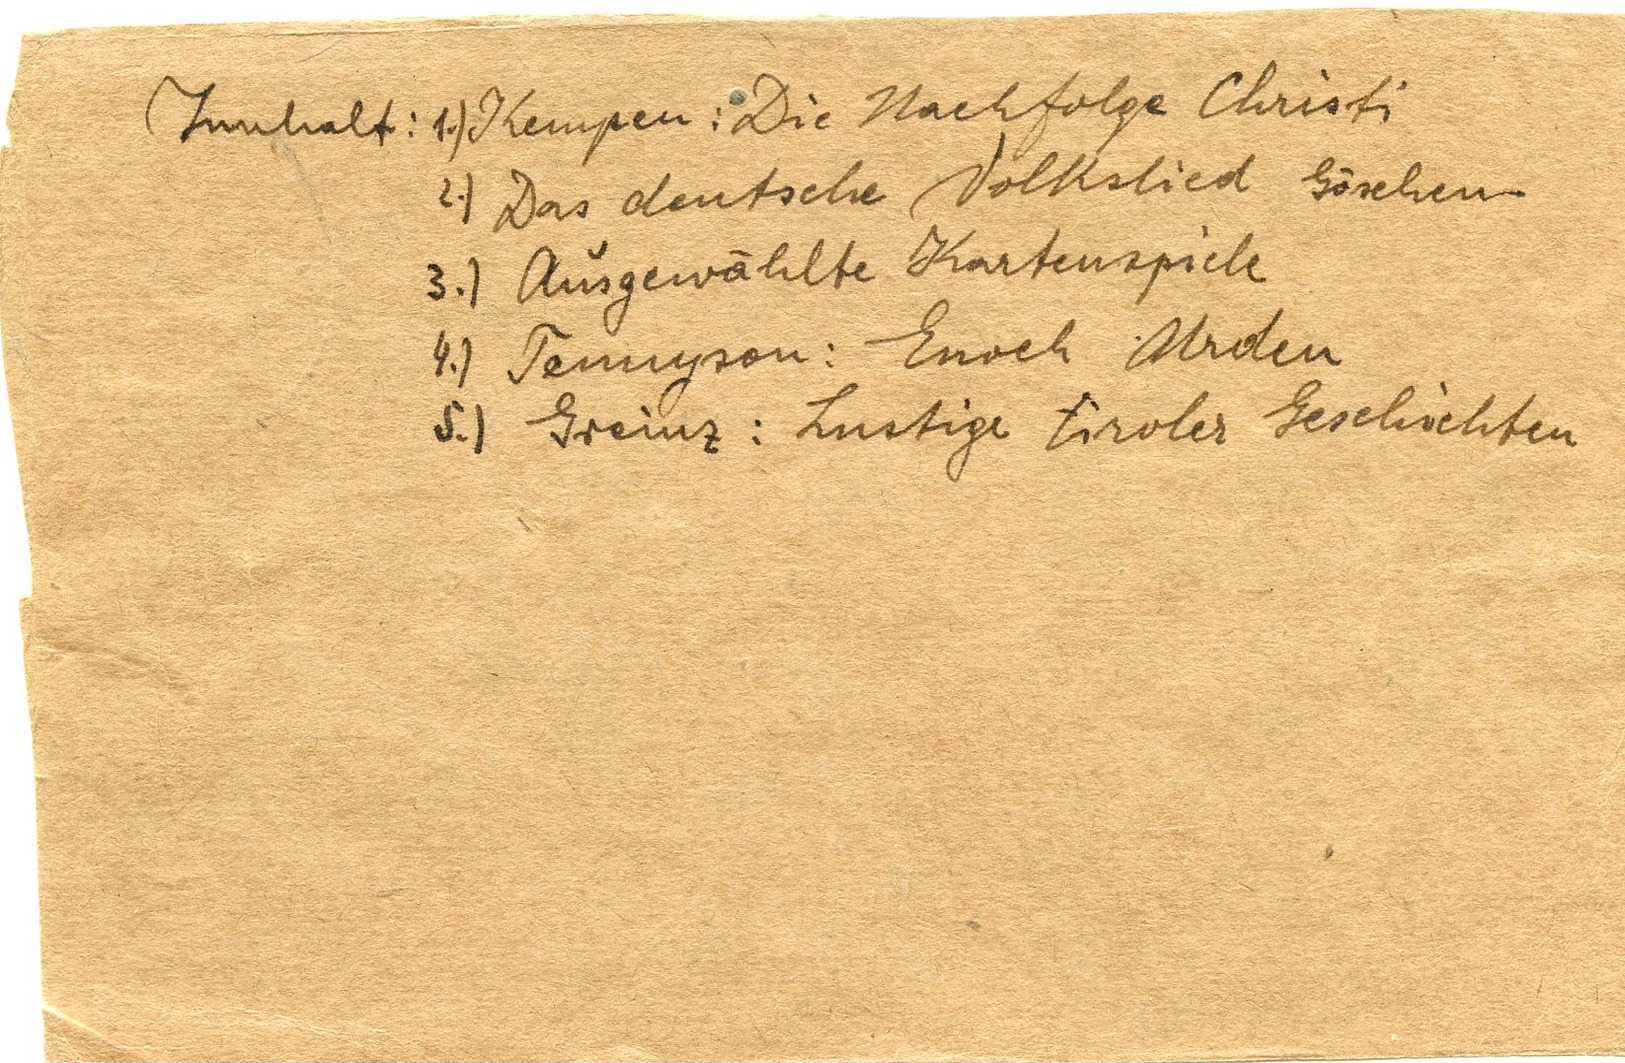 Innhalt: 1.) Kempen: Die Nachfolge Christi
2.) Das deutsche Volkslied Göschen
3.) Ausgewählte Kartenspiele
4.) Tennyson: Enoch Arden
5.) Greinz: Lustige tiroler Geschichten